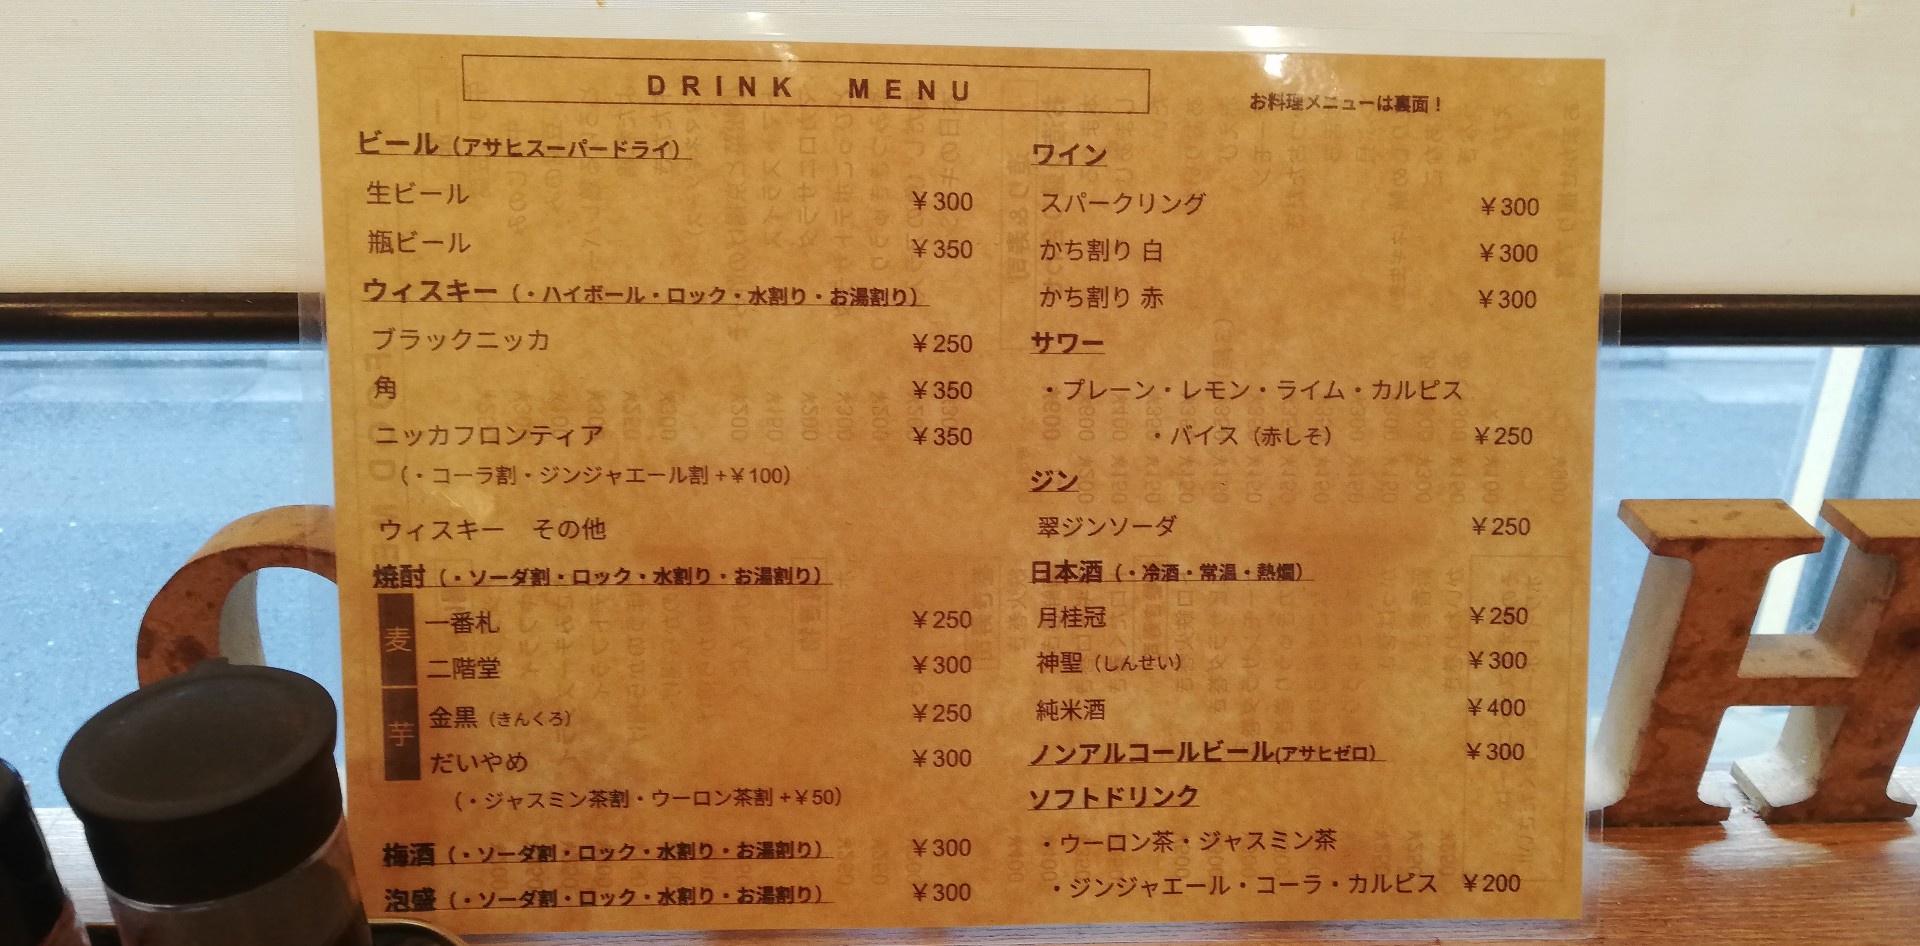 DRINK MENU
お料理メニューは裏面！
ビール（アサヒスーパードライ）
生ビール ￥300
瓶ビール ￥350
ウィスキー（・ハイボール・ロック・水割り・お湯割り）
ブラックニッカ ￥250
角 ￥350
ニッカフロンティア ￥350
（・コーラ割・ジンジャエール割＋￥100）
ウィスキー　その他
焼酎（・ソーダ割・ロック・水割り・お湯割り）
麦
一番札 ￥250
二階堂 ￥300
芋
金黒（きんくろ） ￥250
だいやめ ￥300
（・ジャスミン茶割・ウーロン茶割＋￥50）
梅酒（・ソーダ割・ロック・水割り・お湯割り） ￥300
泡盛（・ソーダ割・ロック・水割り・お湯割り） ￥300
ワイン
スパークリング ￥300
かち割り 白 ￥300
かち割り 赤 ￥300
サワー
・プレーン・レモン・ライム・カルピス
・バイス（赤しそ） ￥250
ジン
翠ジンソーダ ￥250
日本酒（・冷酒・常温・熱燗）
月桂冠 ￥250
神聖（しんせい） ￥300
純米酒 ￥400
ノンアルコールビール(アサヒゼロ） ￥300
ソフトドリンク
・ウーロン茶・ジャスミン茶
・ジンジャエール・コーラ・カルピス ￥200
H